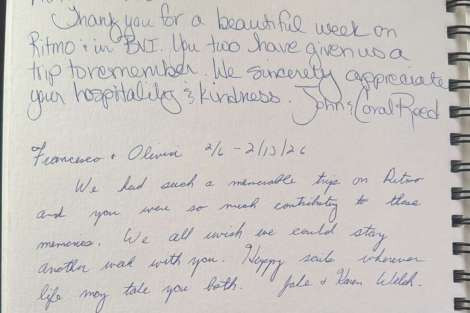 Thank you for a beautiful week on
Ritmo + in BVI. You two have given us a
trip to remember. We sincerely appreciate
your hospitality & kindness. John & Coral Reed
Francesco + Olivia 2/6 - 2/13/26
We had such a memorable trip on Ritmo
and you were so much contributing to those
memories. We all wish we could stay
another week with you. Happy sails wherever
life may take you both. Jake + Karen Welch.